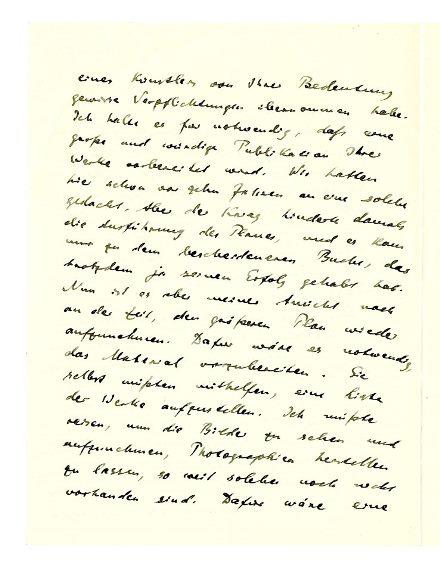 eines Künstlers von Ihrer Bedeutung
gewisse Verpflichtungen übernommen habe.
Ich halte es für notwendig, daß eine
große und würdige Publikation Ihrer
Werke vorbereitet wird. Wir hatten
hie schon vor zehn Jahren an eine solche
gedacht. Aber der Krieg hinderte damals
die Ausführung des Planes, und es kam
nur zu dem bescheideneren Buche, das
trotzdem ja seinen Erfolg gehabt hat.
Nun ist es aber meiner Ansicht nach
an der Zeit, den größeren Plan wieder
aufzunehmen. Dafür wäre es notwendig,
das Material vorzubereiten. Sie
selbst müßten mithelfen, eine Liste
der Werke aufzustellen. Ich müßte
reisen, um die Bilder zu sehen und
aufzunehmen, Photographien herstellen
zu lassen, so weit solche noch nicht
vorhanden sind. Dafür wäre eine